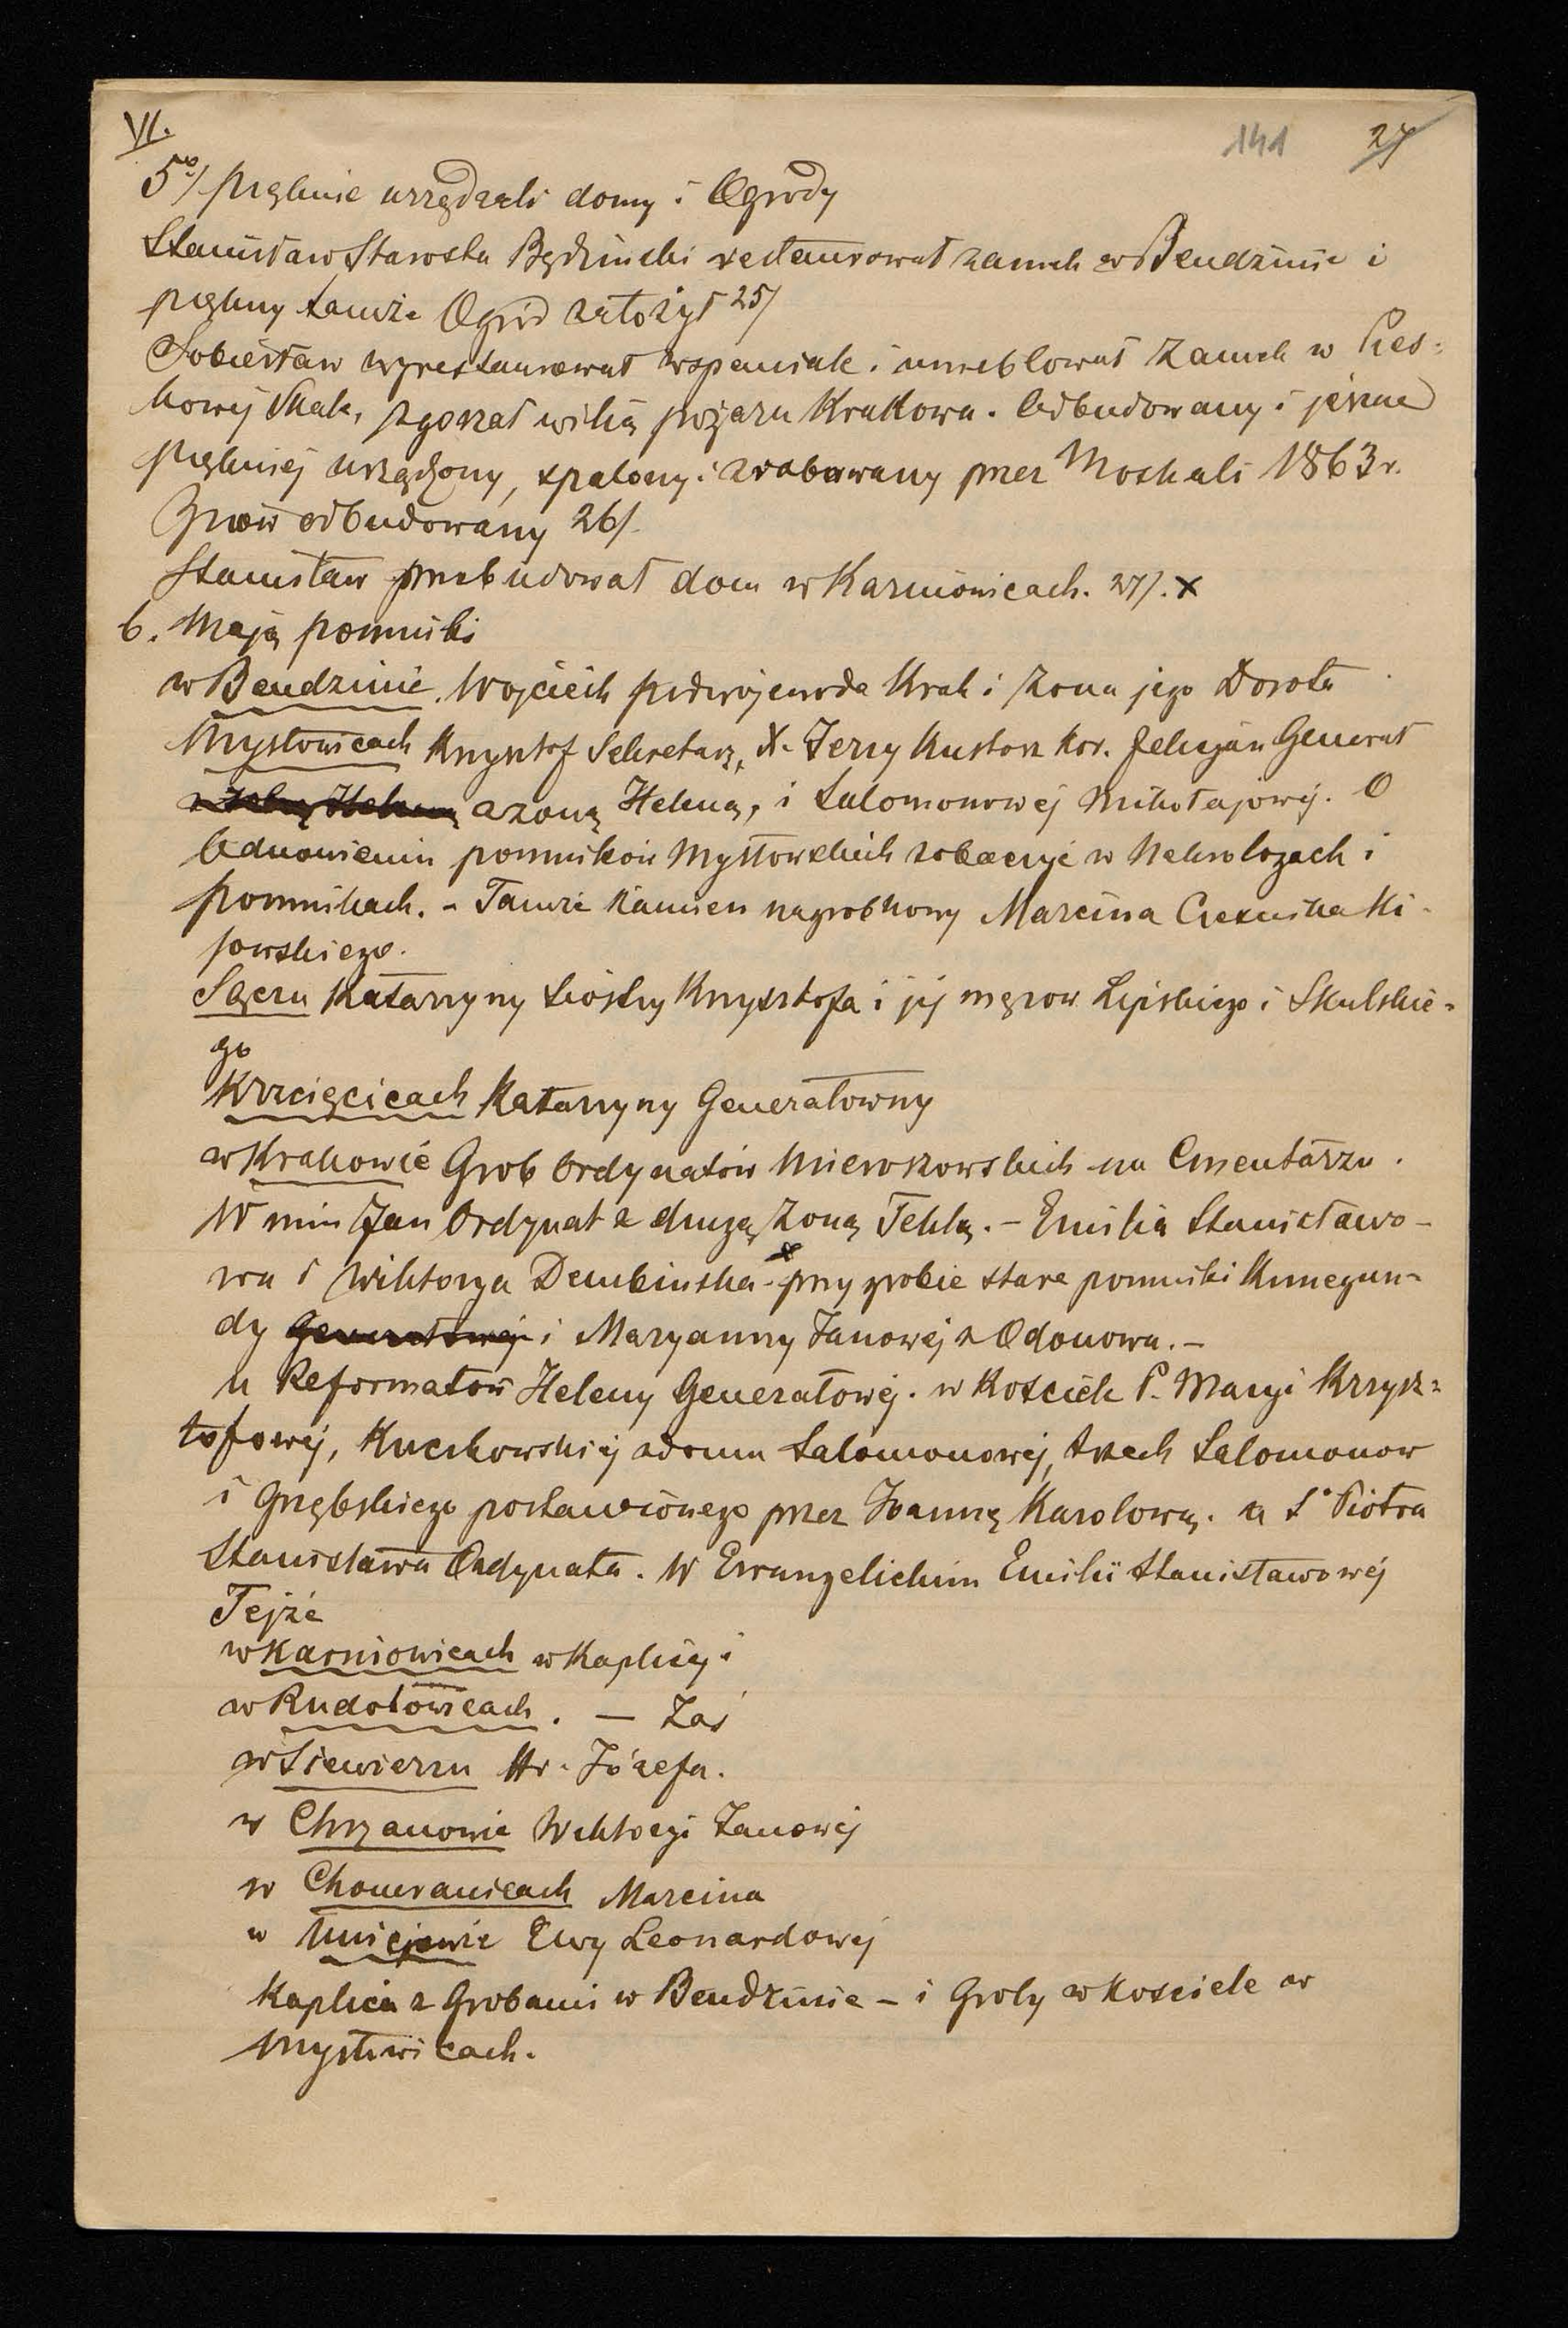 VI.
141 27
5º/ pięknie urządzali domy i Ogrody
Stanisław Starosta Będziński restaurował zamek w Bendzinie i
piękny tamże Ogród założył 25/
Sobiesław wyrestaurował wspaniale i umeblował Zamek w Pies-
kowej Skale, zgorzał wilią pożaru Krakowa. Odbudowany i jeszcze
piękniej urządzony, spalony i zrabowany przez Moskali 1863 r.
Znów odbudowany 26/.
Stanisław przebudował dom w Karniowicach. 27/. x
6. Mają pomniki
w Bendzinie. Wojciech podwojewoda Krak i Żona jego Dorota
Mysłowicach Krzysztof Sekretarz, X. Jerzy Kustosz Kor. Felicyan Generał
z żoną Heleną z żoną Heleną, i Salomonowej Mikołajowej. O
Odnowieniu pomników Mysłowskich zobaczyć w Nekrologach i
pomnikach. - Tamże Kamien nagrobkowy Marcina Cześnika Ki-
jowskiego.
Sączu Katarzyny siostry Krzysztofa i jej mężow Lipskiego i Skulskie-
go
Krzcięcicach Katarzyny Generałowny
w Krakowie Grob Ordynatów Mieroszowskich na Cmentarzu.
W nim Jan Ordynat z drugą Żoną Teklą. - Emilia Stanisławo-
wa i Wiktorya Dembinska - x przy grobie stare pomniki Kunegun-
dy Generałowej i Maryanny Janowej z Odonowa. -
u Reformatów Heleny Generałowej. w Kościele P. Maryi Krzysz-
tofowej, Kuczkowskiej zdomu Salomonowej, trzech Salomonow
i Grzębskiego postawionego przez Joannę Karolową. u Sº Piotra
Stanisława Ordynata. W Ewangelickim Emilii Stanisławowej
Tejże
w Karniowicach w Kaplicy i
w Rudołowicach. — Zaś
w Siewierzu Hr. Józefa.
w Chrzanowie Wiktoryi Janowej
w Chomranicach Marcina
w Uniejowie Ewy Leonardowej
Kaplica z Grobami w Bendzinie - i Groby w Kościele w
Mysłowicach.